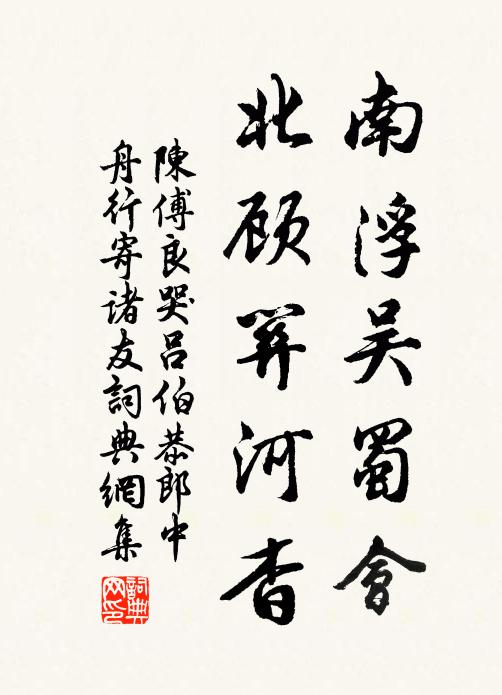 南浮吴蜀會
北顾關河杳
陳傅良哭吕伯恭郎中
舟行寄诸友詞典網集
詞典网印